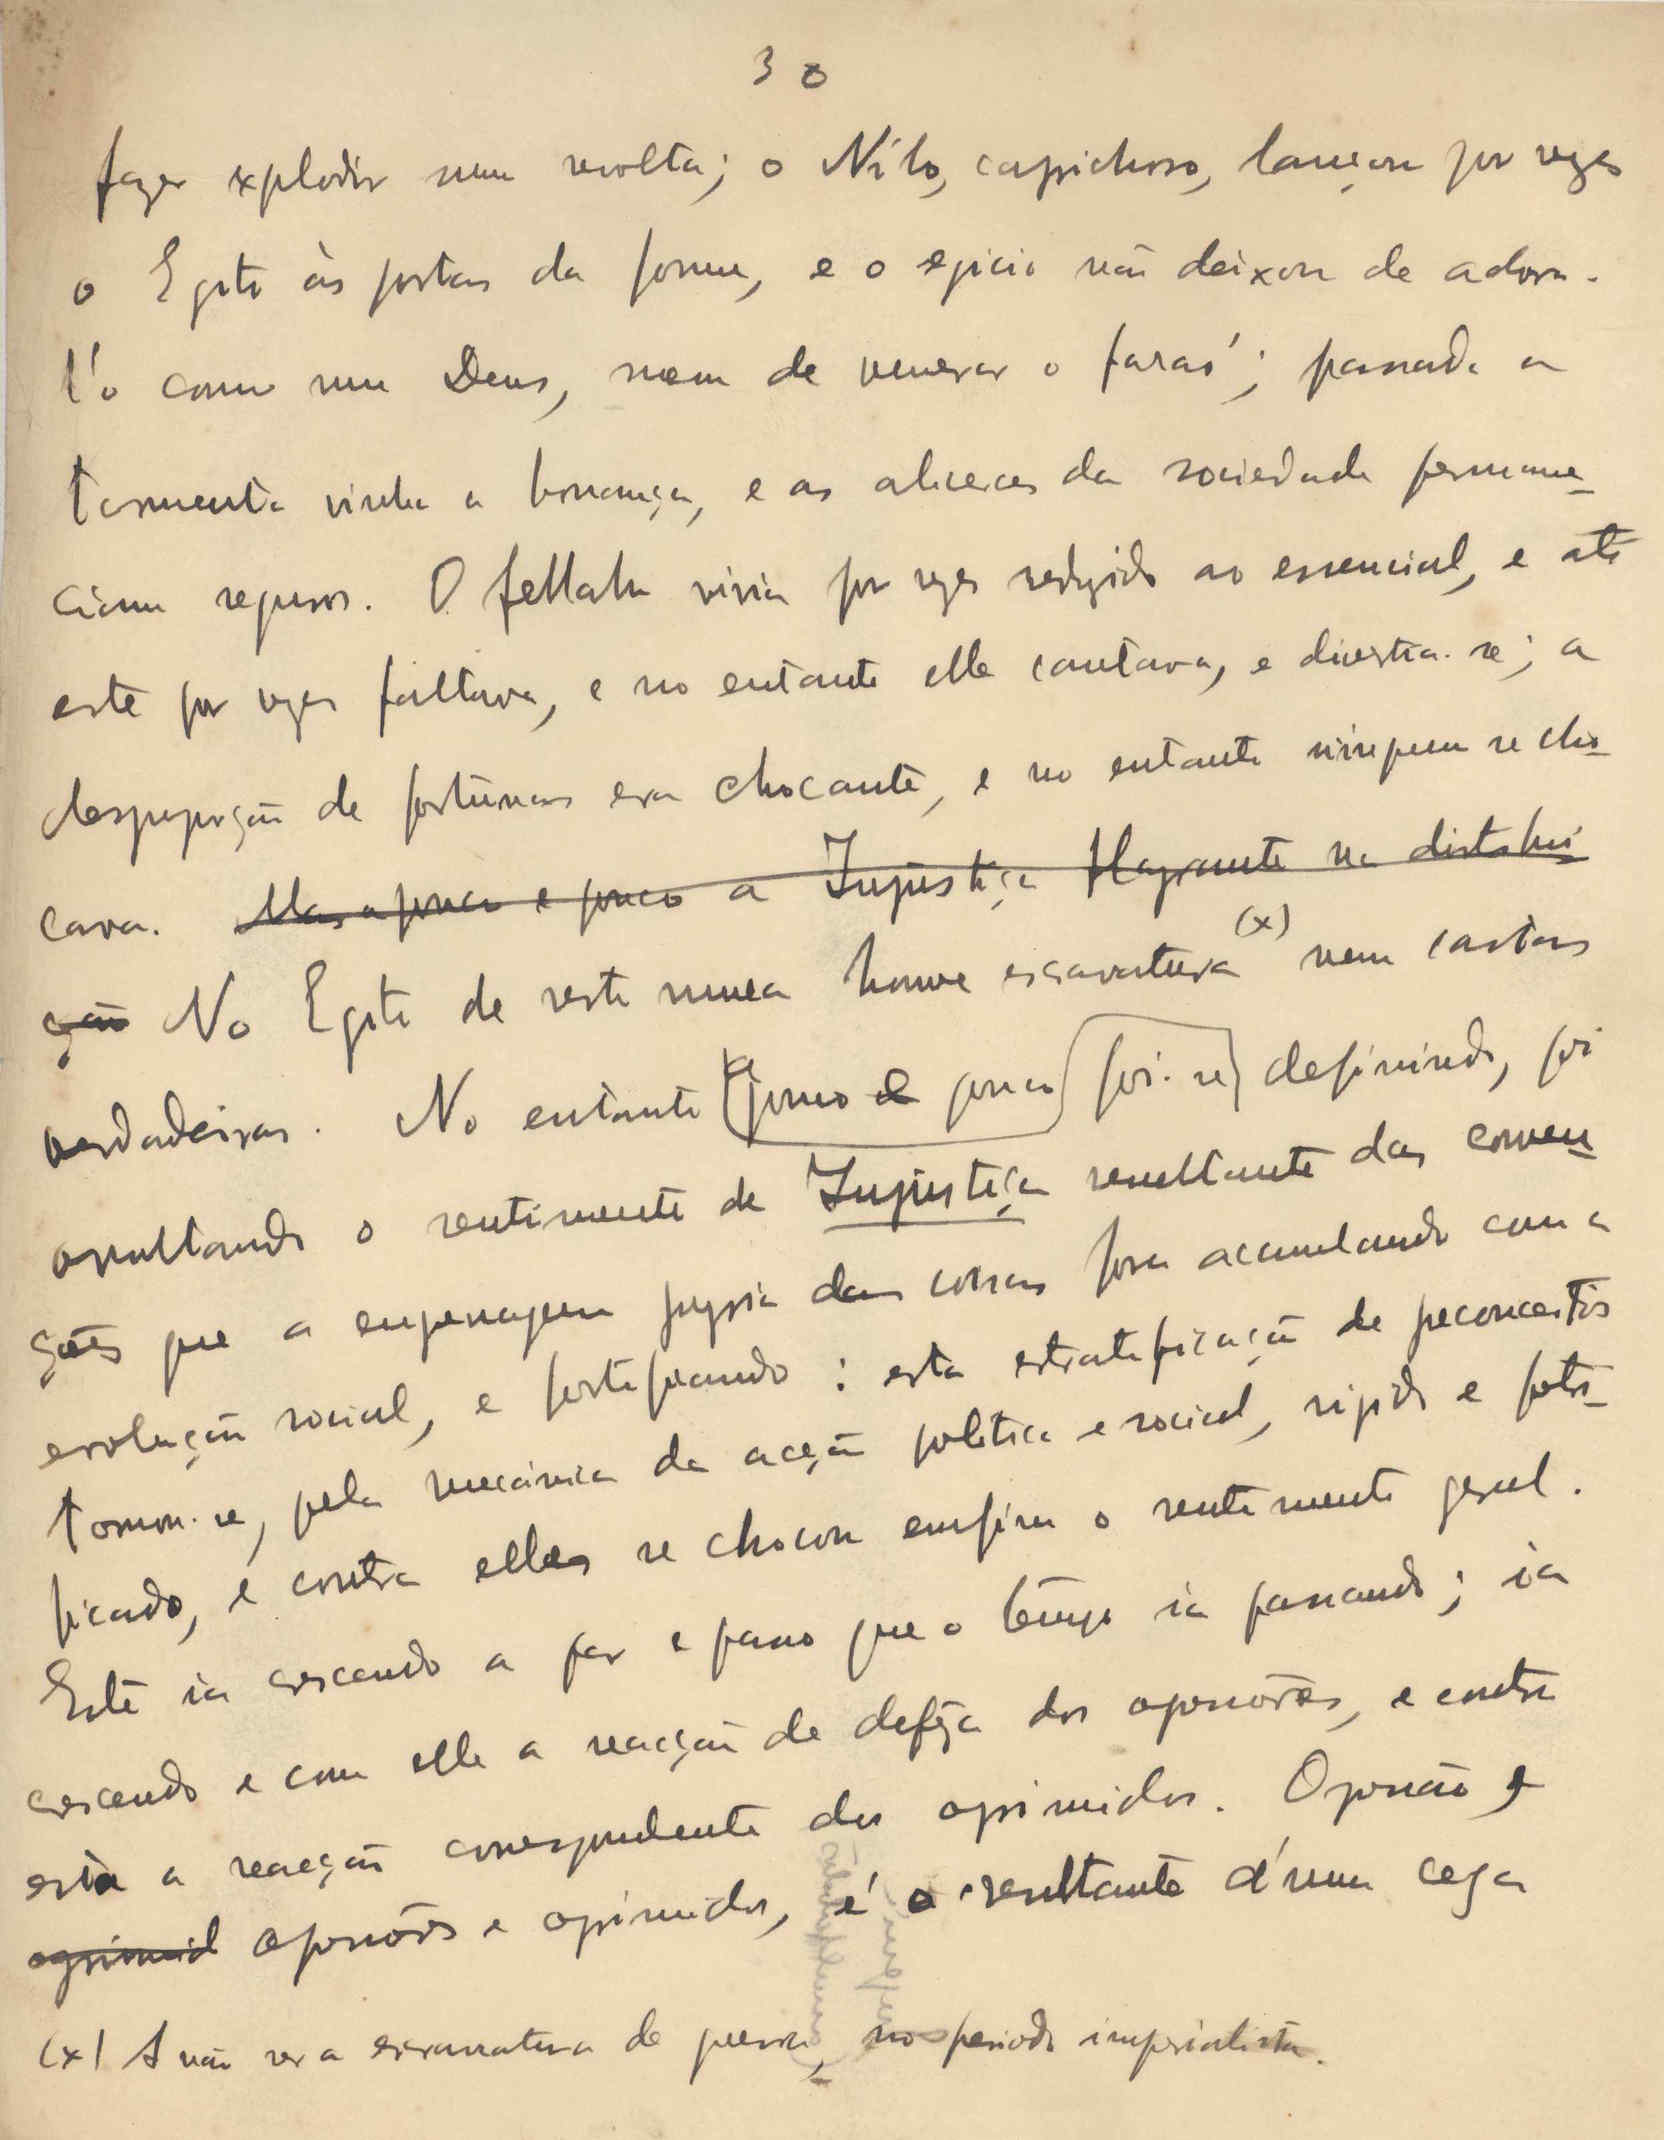 30
fazer explodir numa revolta; o Nilo, caprichoso, lançou por vezes
o Egito às portas da fome, e o egicio não deixou de adora-
l'o como um Deus, nem de venerar o faraó; passada a
tormenta vinha a bonança, e os alicerces da sociedade permane-
ciam seguros. O fellah vivia por vezes reduzido ao essencial, e até
este por vezes faltava, e no entanto elle cantava, e divertia-se; a
desproporção de fortunas era chocante, e no entanto ninguem se cho-
cava. Mas a pouco e pouco a Injustiça flagrante na distribui-
ção No Egito de resto nunca houve escravatura (x) nem castas
verdadeiras. No entanto a pouco e pouco foi-se definindo, foi
avultando o sentimento da Injustiça resultante das conven-
ções que a engrenagem propria das coisas fora acumulando com a
evolução social, e fortificando: esta estratificação de preconceitos
tornou-se, pela mecânica da acção politica e social, rigida e petri-
ficado, e contra elles se chocou emfim o sentimento geral.
Este ia crescendo a par e passo que o tempo ia passando; ia
crescendo e com elle a reacção de defeza dos opressores, e contra
esta a reacção correspondente dos oprimidos. Opressão e
oprimid opressores e oprimidos, é a resultante d'uma cega
(x) A não ser a escravatura de guerra, no periodo imperialista.